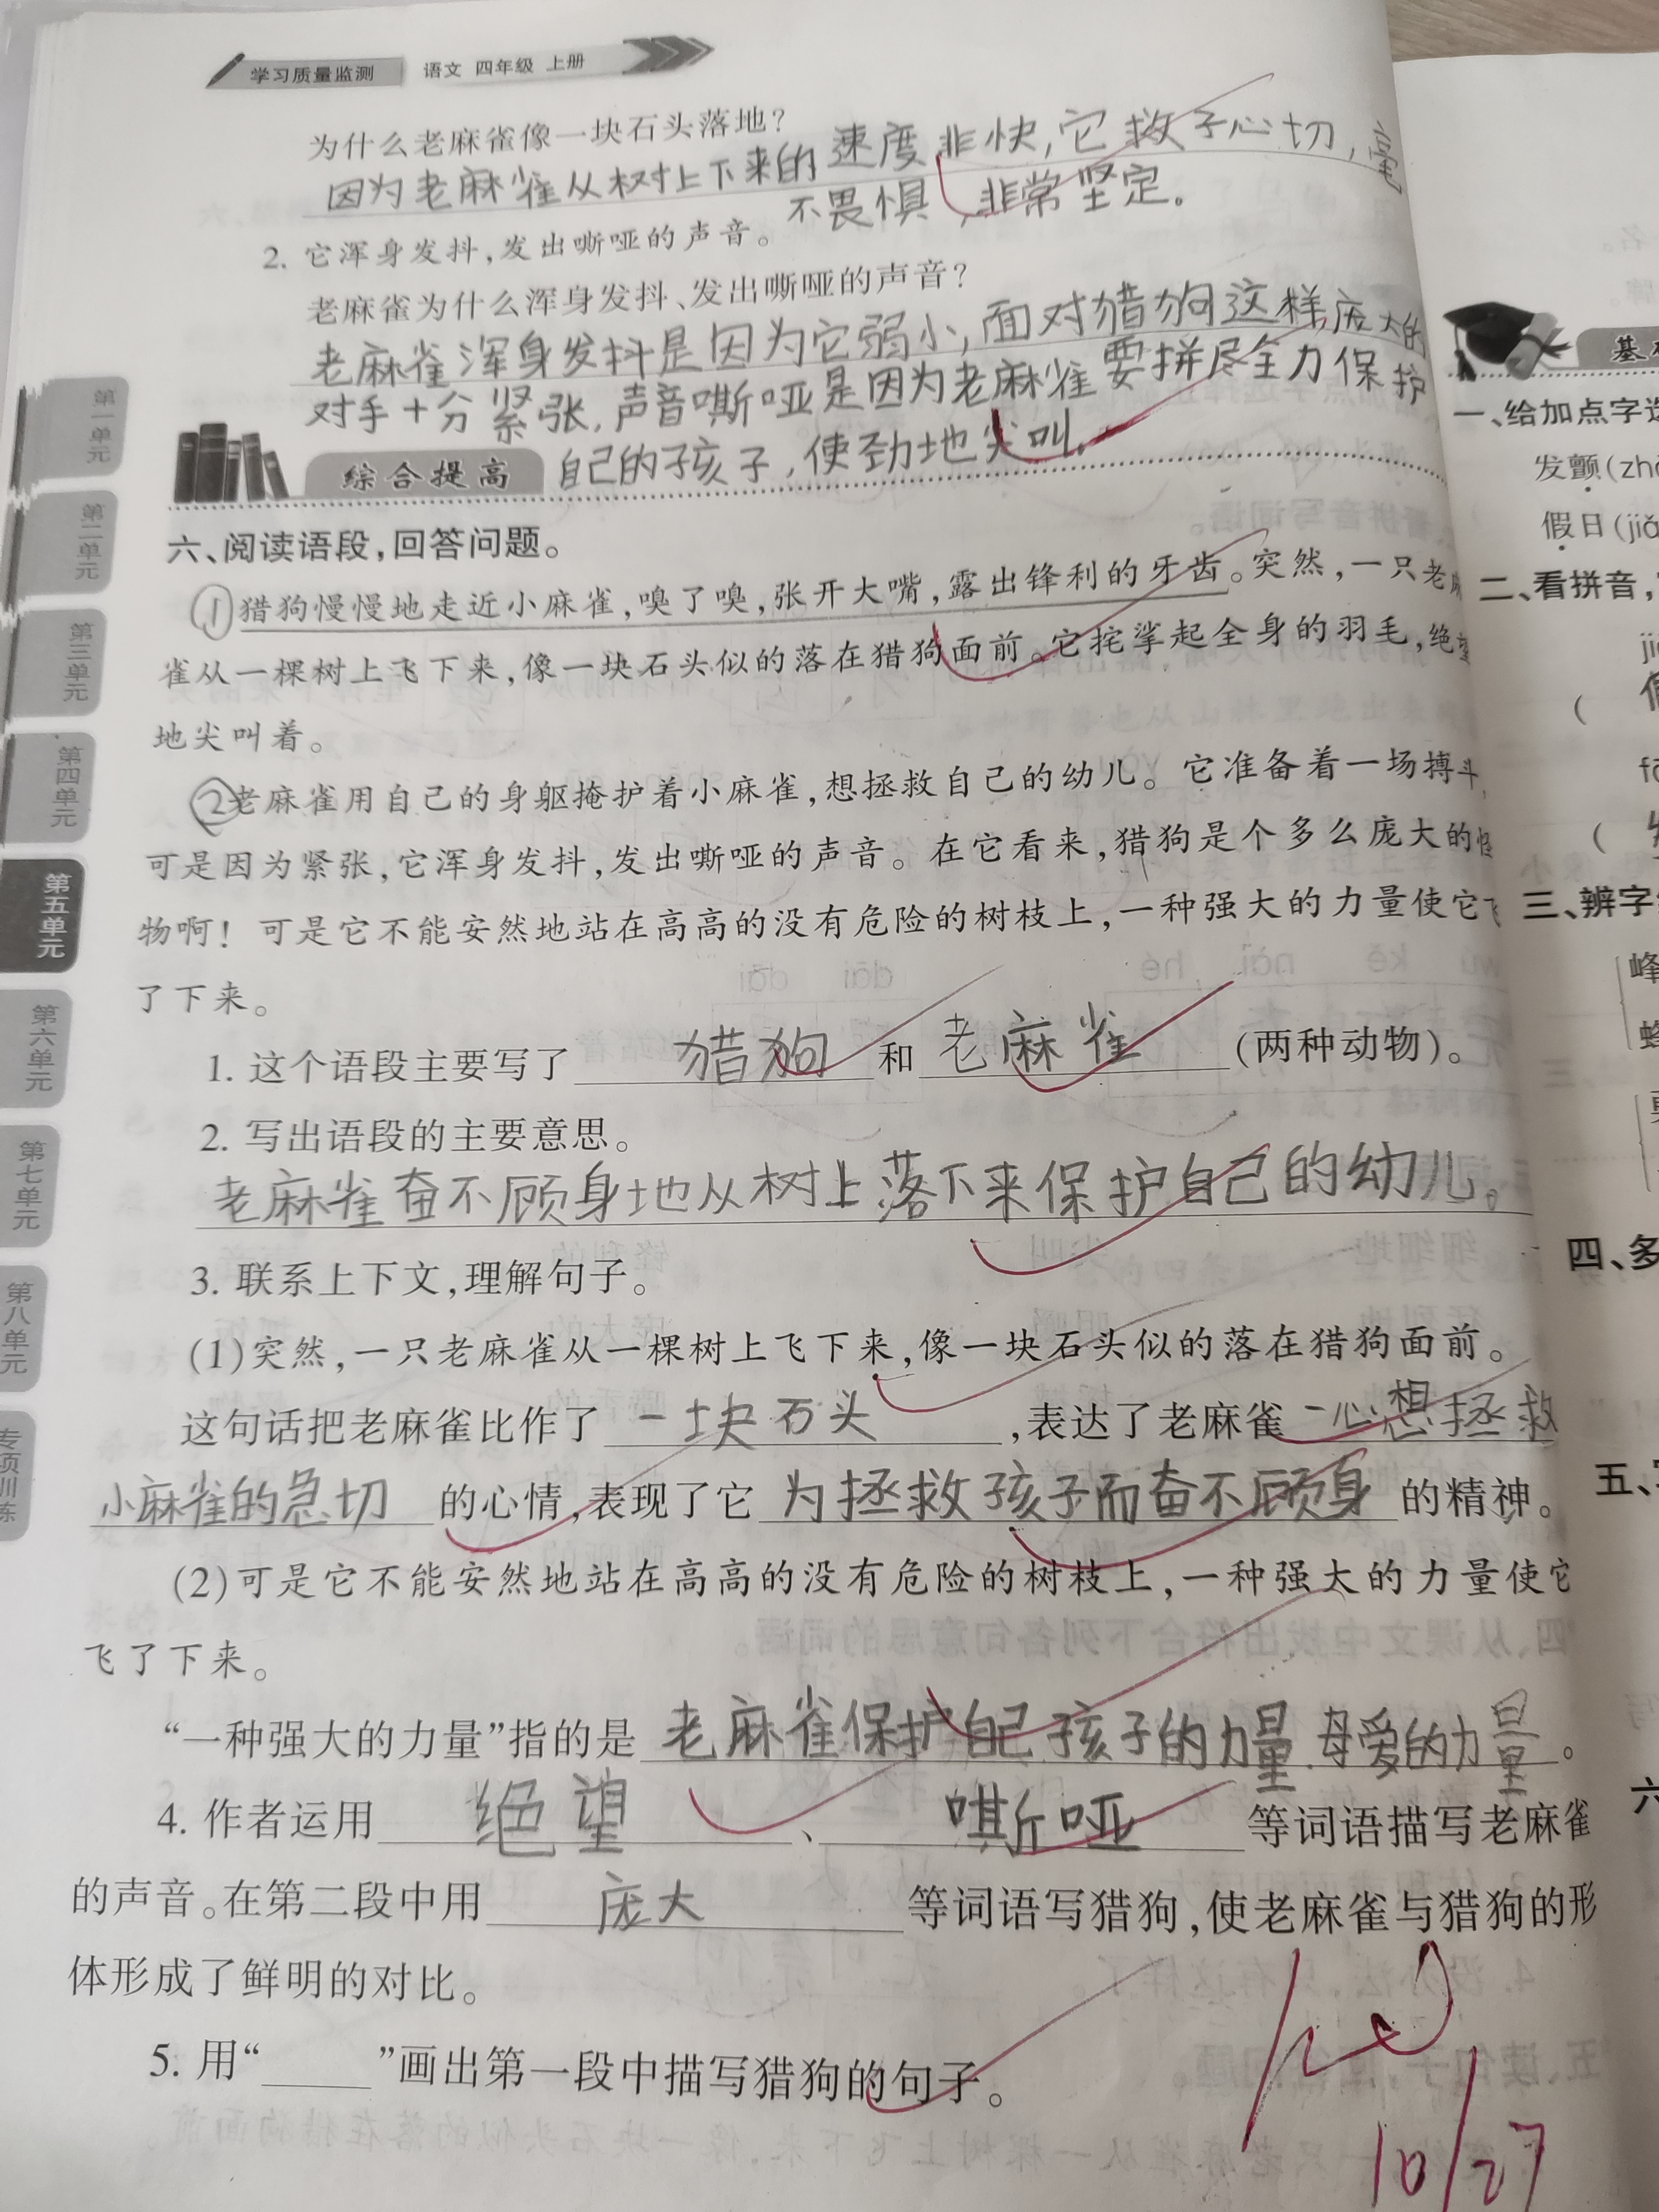 学习质量监测 语文 四年级 上册
为什么老麻雀像一块石头落地?
因为老麻雀从树上下来的速度非快,它救子心切,
不畏惧,非常坚定。
2. 它浑身发抖,发出嘶哑的声音。
老麻雀为什么浑身发抖、发出嘶哑的声音?
老麻雀浑身发抖是因为它弱小,面对猎狗这样庞大的
对手十分紧张,声音嘶哑是因为老麻雀要拼尽全力保护
自己的孩子,使劲地尖叫。
综合提高
六、阅读语段,回答问题。
①猎狗慢慢地走近小麻雀,嗅了嗅,张开大嘴,露出锋利的牙齿。突然,一只老麻
雀从一棵树上飞下来,像一块石头似的落在猎狗面前。它挓挲起全身的羽毛,绝望
地尖叫着。
②老麻雀用自己的身躯掩护着小麻雀,想拯救自己的幼儿。它准备着一场搏斗,
可是因为紧张,它浑身发抖,发出嘶哑的声音。在它看来,猎狗是个多么庞大的怪
物啊! 可是它不能安然地站在高高的没有危险的树枝上,一种强大的力量使它飞
了下来。
1. 这个语段主要写了 猎狗 和 老麻雀 (两种动物)。
2. 写出语段的主要意思。
老麻雀奋不顾身地从树上落下来保护自己的幼儿。
3. 联系上下文,理解句子。
(1)突然,一只老麻雀从一棵树上飞下来,像一块石头似的落在猎狗面前。
这句话把老麻雀比作了 一块石头 ,表达了老麻雀 一心想拯救
小麻雀的急切 的心情,表现了它 为拯救孩子而奋不顾身 的精神。
(2)可是它不能安然地站在高高的没有危险的树枝上,一种强大的力量使它
飞了下来。
“一种强大的力量”指的是 老麻雀保护自己孩子的力量.母爱的力量 。
4. 作者运用 绝望 、 嘶哑 等词语描写老麻雀
的声音。在第二段中用 庞大 等词语写猎狗,使老麻雀与猎狗的形
体形成了鲜明的对比。
5. 用“____”画出第一段中描写猎狗的句子。
10/27
第一单元
第二单元
第三单元
第四单元
第五单元
第六单元
第七单元
第八单元
专项训练
一、给加点字
发颤(zh
假日(ji
二、看拼音,
三、辨字
峰
四、多
五、
六